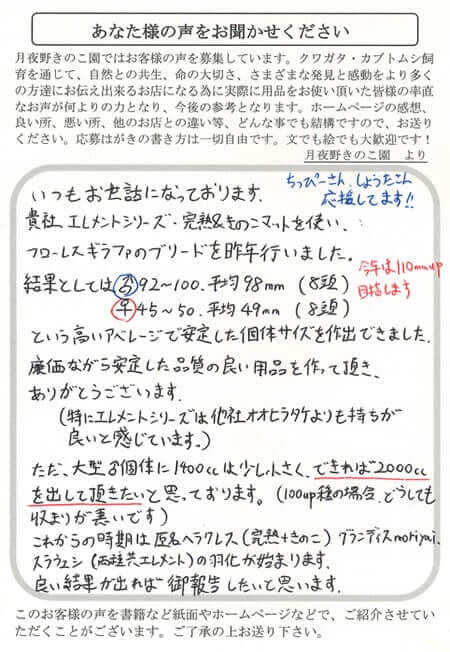 あなた様の声をお聞かせください
月夜野きのこ園ではお客様の声を募集しています。クワガタ・カブトムシ飼
育を通じて、自然との共生、命の大切さ、さまざまな発見と感動をより多く
の方達にお伝え出来るお店になる為に実際に用品をお使い頂いた皆様の率直
なお声が何よりの力となり、今後の参考となります。ホームページの感想、
良い所、悪い所、他のお店との違い等、どんな事でも結構ですので、お送り
ください。応募はがきの書き方は一切自由です。文でも絵でも大歓迎です！
月夜野きのこ園　より
ちっぴーさん、しょうたさん
応援してます!!
いつもお世話になっております。
貴社 エレメントシリーズ・完熟&きのこマットを使い、
フローレスギラファのブリードを昨年行いました。
今年は110mmup
目指します
結果としては♂92～100.平均98mm (8頭)
♀45～50.平均49mm (8頭)
という高いアベレージで安定した個体サイズを作出できました。
廉価ながら安定した品質の良い用品を作って頂き、
ありがとうございます。
(特にエレメントシリーズは他社オオヒラタケよりも持ちが
良いと感じています。)
ただ、大型♂個体に1400ccは少し小さく、できれば2000cc
を出して頂きたいと思っております。(100up種の場合、どうしても
収まりが悪いです)
これからの時期は 匠名ヘラクレス(完熟+きのこ) グランディスmoriyai、
スラウェシ(両種共エレメント)の羽化が始まります。
良い結果が出れば御報告したいと思います。
このお客様の声を書籍など紙面やホームページなどで、ご紹介させてい
ただくことがございます。ご了承の上お送り下さい。